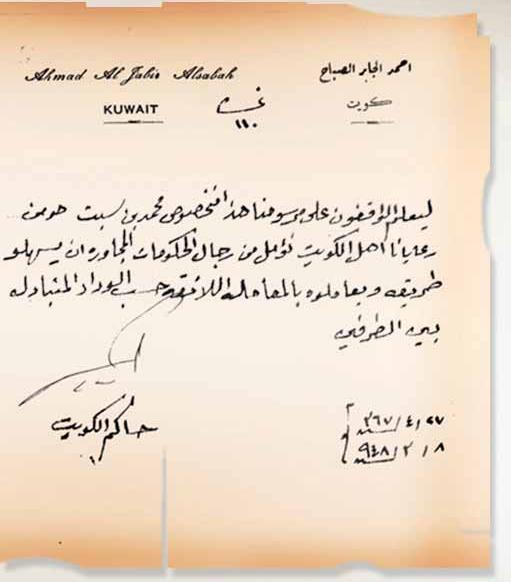 Ahmad Al Jabir Alsabah
احمد الجابر الصباح
KUWAIT
كويت
نمرة
١١٠
ليعلم الواقفون على مرسومنا هذا محمد بن سبت هو من
رعايانا أهل الكويت نؤمل من رجال الحكومات المجاوره ان يسهلو
طريقه ويعاملوه بالمعامله اللائقه حسب الوداد المتبادله
بين الطرفين
حاكم الكويت
٢٧/٤/٣٦٧
٨/٣/٩٤٨